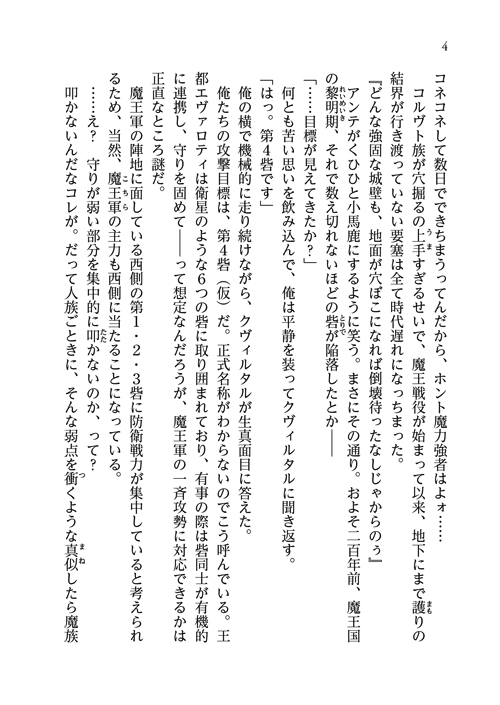 4
コネコネして数日でできちまうってんだから、ホント魔力強者はよォ……
コルヴト族が穴掘るの上手すぎるせいで、魔王戦役が始まって以来、地下にまで護りの
結界が行き渡っていない要塞は全て時代遅れになっちまった。
『どんな強固な城壁も、地面が穴ぼこになれば倒壊待ったなしじゃからのぅ』
アンテがくひひと小馬鹿にするように笑う。まさにその通り。およそ二百年前、魔王国
の黎明期、それで数え切れないほどの砦が陥落したとか――
「……目標が見えてきたか?」
何とも苦い思いを飲み込んで、俺は平静を装ってクヴィルタルに聞き返す。
「はっ。第4砦です」
俺の横で機械的に走り続けながら、クヴィルタルが生真面目に答えた。
俺たちの攻撃目標は、第4砦(仮)だ。正式名称がわからないのでこう呼んでいる。王
都エヴァロティは衛星のような6つの砦に取り囲まれており、有事の際は砦同士が有機的
に連携し、守りを固めて――って想定なんだろうが、魔王軍の一斉攻勢に対応できるかは
正直なところ謎だ。
魔王軍の陣地に面している西側の第1・2・3砦に防衛戦力が集中していると考えられ
るため、当然、魔王軍の主力も西側に当たることになっている。
……え? 守りが弱い部分を集中的に叩かないのか、って?
叩かないんだなコレが。だって人族ごときに、そんな弱点を衝くような真似したら魔族